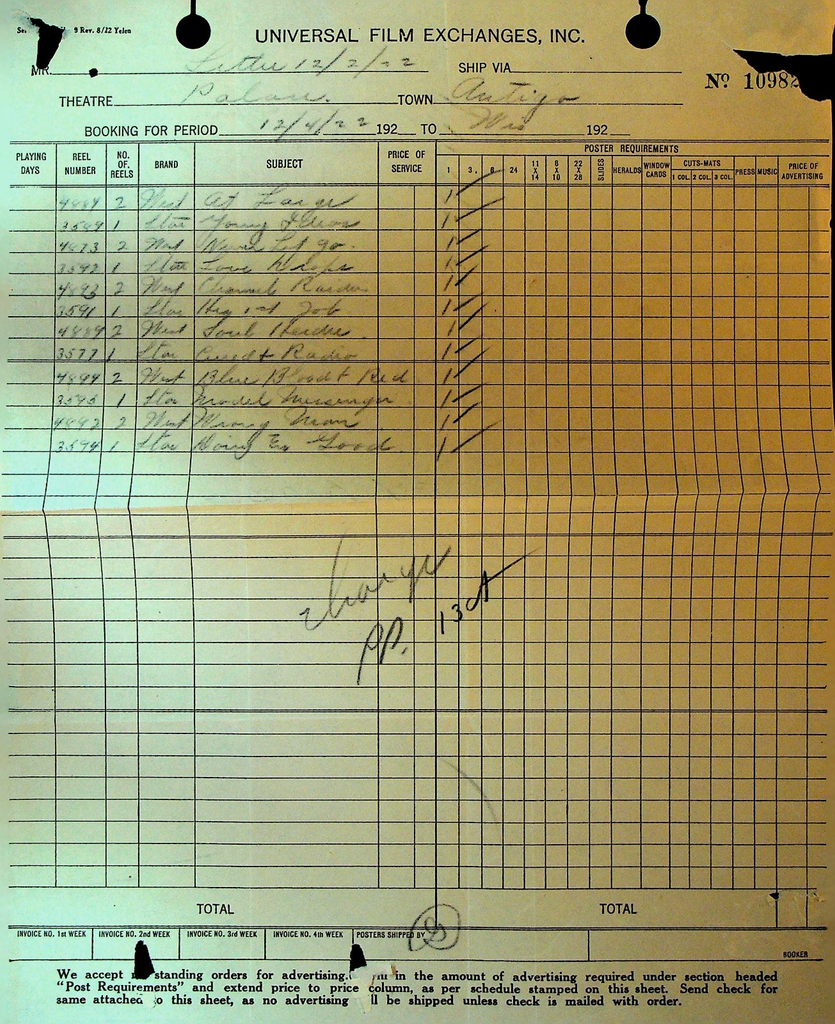 9 Rev. 8/22 Yelen
UNIVERSAL FILM EXCHANGES, INC.
MR. Letter 12/2/22 SHIP VIA
No 10982
THEATRE Palace. TOWN Antigo
BOOKING FOR PERIOD 12/4/22 192 TO Wis 192
PLAYING DAYS REEL NUMBER NO. OF. REELS BRAND SUBJECT PRICE OF SERVICE POSTER REQUIREMENTS
1 3 6 24 11 X 14 8 X 10 22 X 28 SLIDES HERALDS WINDOW CARDS CUTS-MATS 1 COL. 2 COL. 3 COL. PRESS MUSIC PRICE OF ADVERTISING
2 West At Large 1
1 Star Young Ideas 1
2 West Never Let go. 1
1 Star Love Drops 1
2 West Channel Raiders 1
3591 1 Star His 1st Job 1
4889 2 West Soul Herder 1
3577 1 Star 1
4894 2 West Blue Blood & Red 1
1 Star Model Messenger 1
4892 2 West Wrong Man 1
3594 1 Star Doing Em Good 1
charge
PP. 13ct
TOTAL TOTAL
INVOICE NO. 1st WEEK INVOICE NO. 2nd WEEK INVOICE NO. 3rd WEEK INVOICE NO. 4th WEEK POSTERS SHIPPED BY
BOOKER
We accept standing orders for advertising. in the amount of advertising required under section headed
"Post Requirements" and extend price to price column, as per schedule stamped on this sheet. Send check for
same attached to this sheet, as no advertising be shipped unless check is mailed with order.